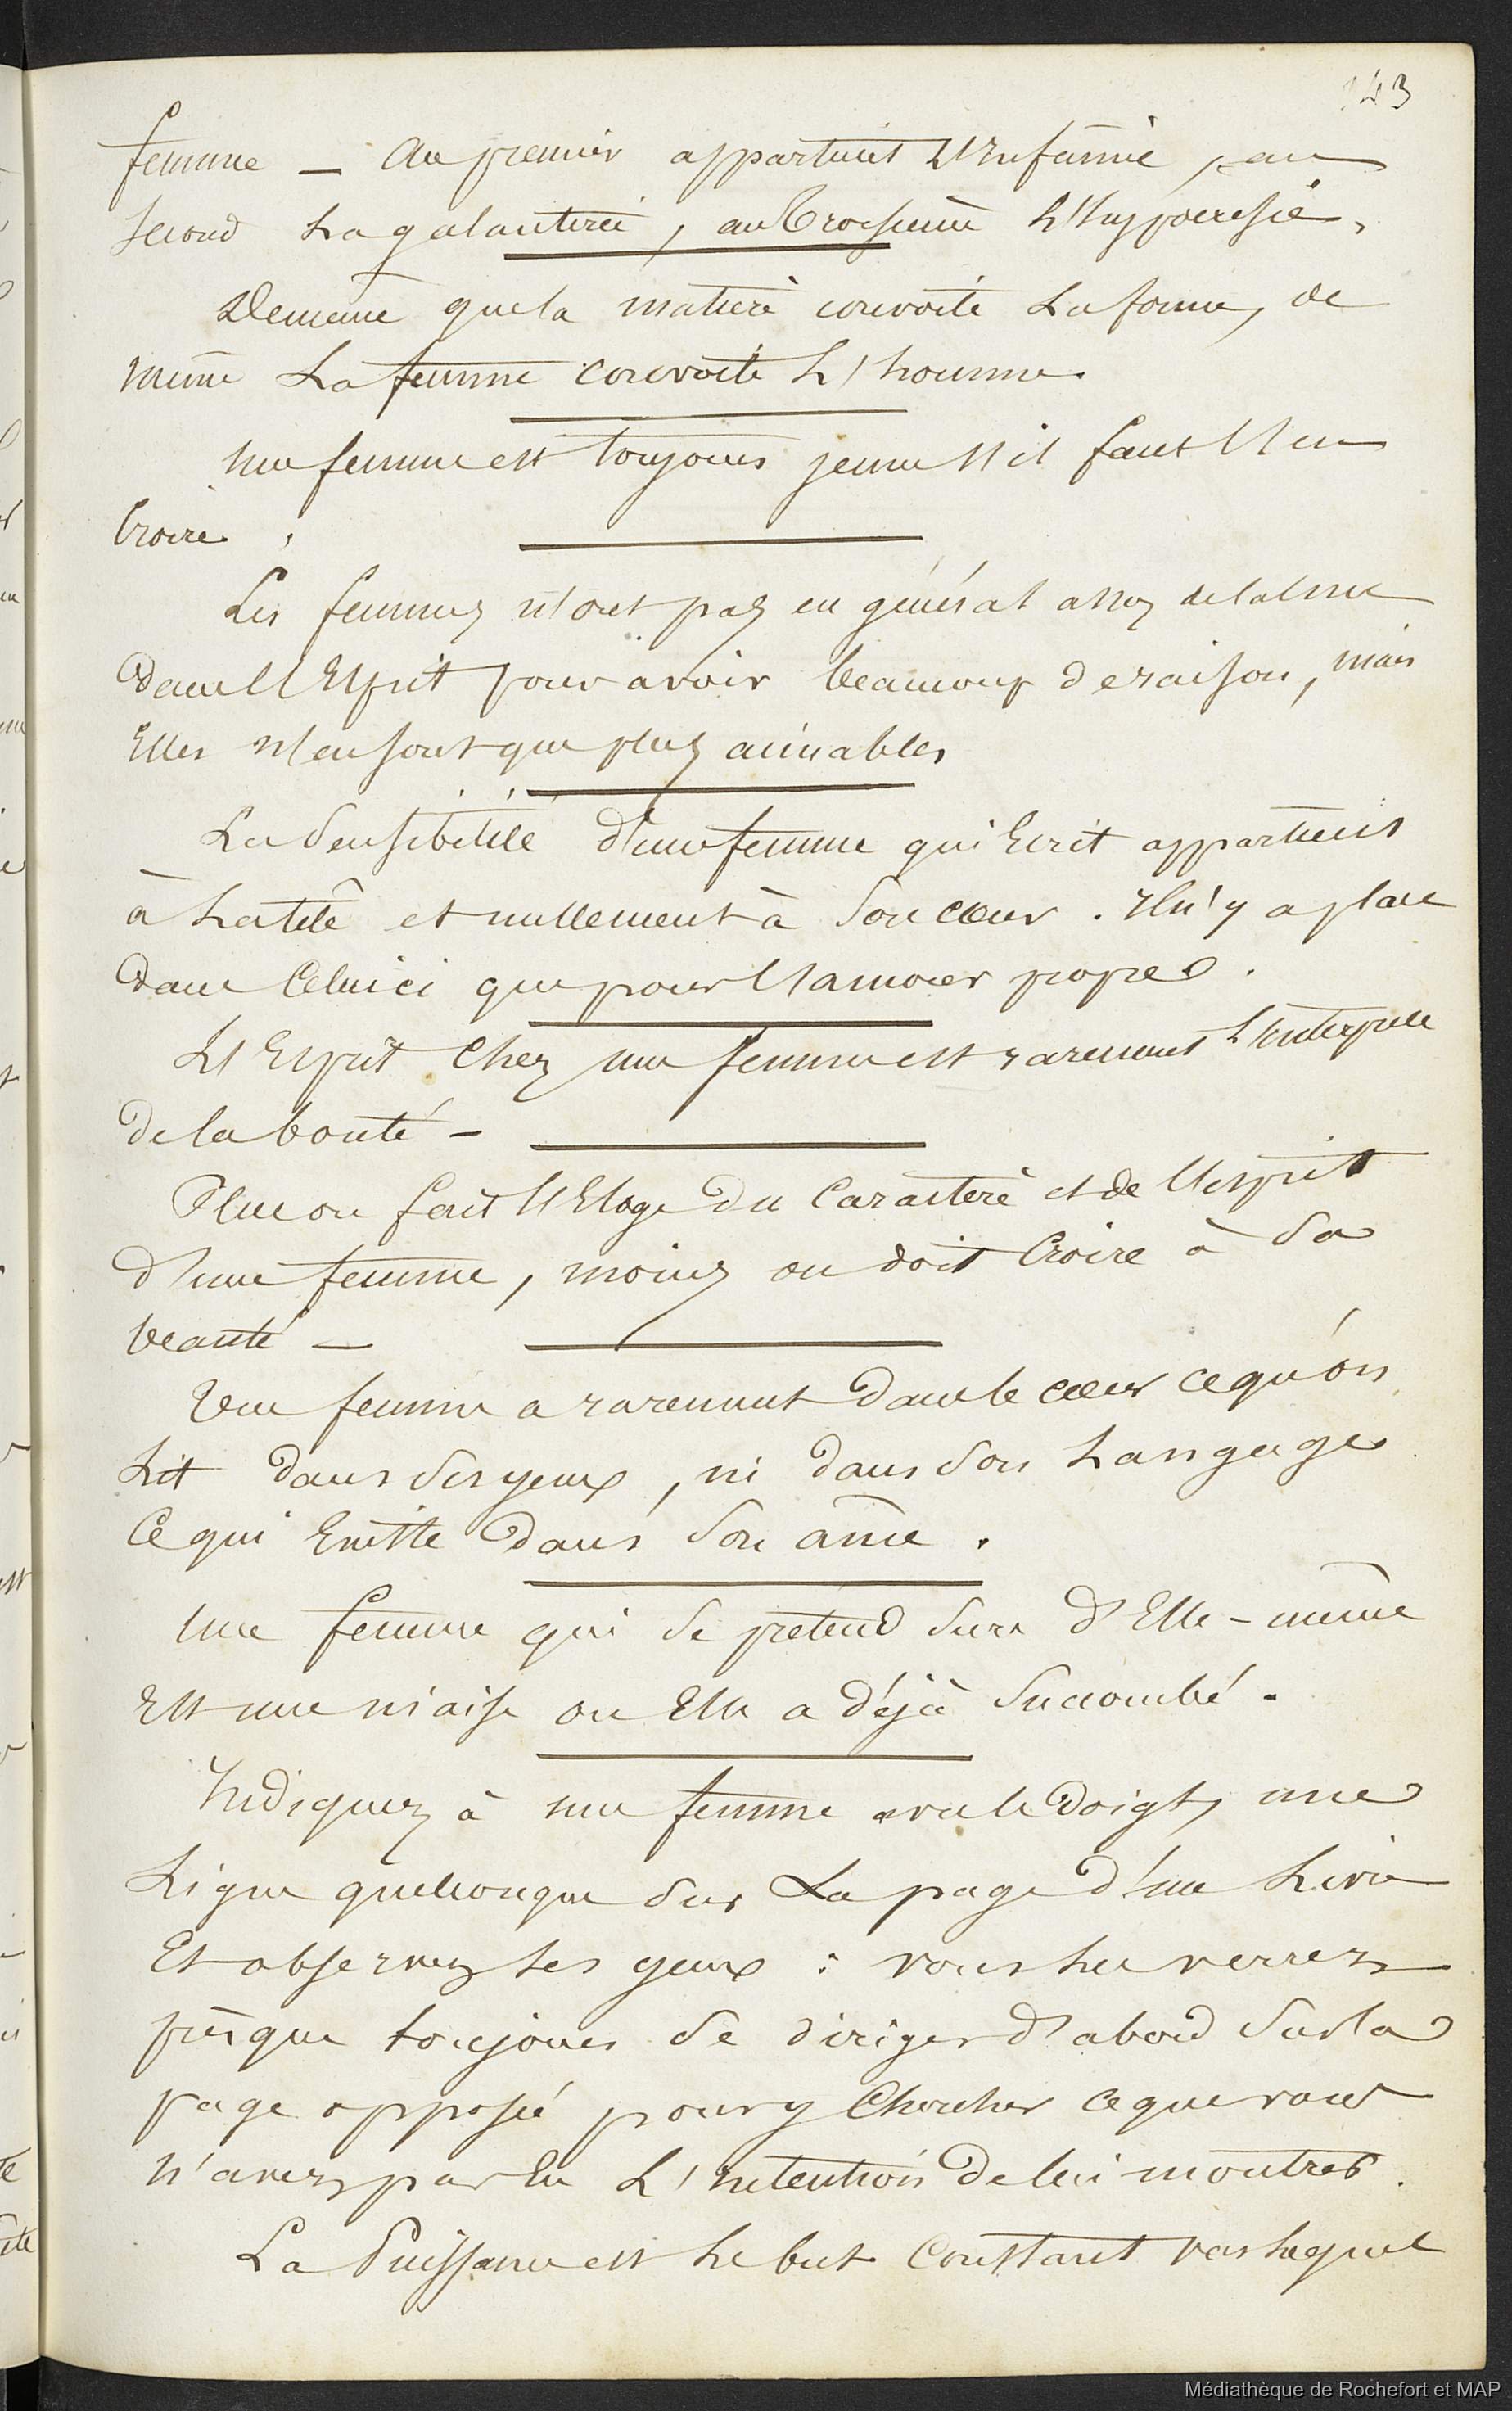 143
femme — au premier appartient L'Infamie, au
second La galanterie, au troisieme L'hypocresie,
Demême que la matière convoite La forme, de
même La femme convoite L'homme.
une femme est toujours jeune s'il faut l'en
croire.
Les femmes n'ont pas en général assez de calme
dans l'Esprit pour avoir beaucoup de raison, mais
Elles n'en sont que plus aimables
La Sensibilité d'une femme qui Ecrit appartient
à La tête et nullement à Son cœur. Il n'y a place
dans Celui ci que pour l'amour propre.
L'Esprit Chez une femme est rarement L'interprete
de la bonté —
Plus on fait l'Eloge du Caractère et de l'esprit
d'une femme, moins on doit Croire à Sa
beauté —
Une femme a rarement dans le cœur ce qu'on
Lit dans Ses yeux, ni dans Son Langage
Ce qui Existe dans Son âme.
Une femme qui Se prétend Sure d'Elle-même
Est une niaise ou Elle a déjà Succombé.
Indiquez à une femme avec le doigt, une
Ligne quelconque Sur La page d'un Livre
Et observez Ses yeux : vous Les verrez
presque toujours Se diriger d'abord Sur la
page opposée pour y Chercher ce que vous
n'avez pas Eu L'intention de lui montrer.
La Puissance est Le but Constant vers Lequel
Médiathèque de Rochefort et MAP